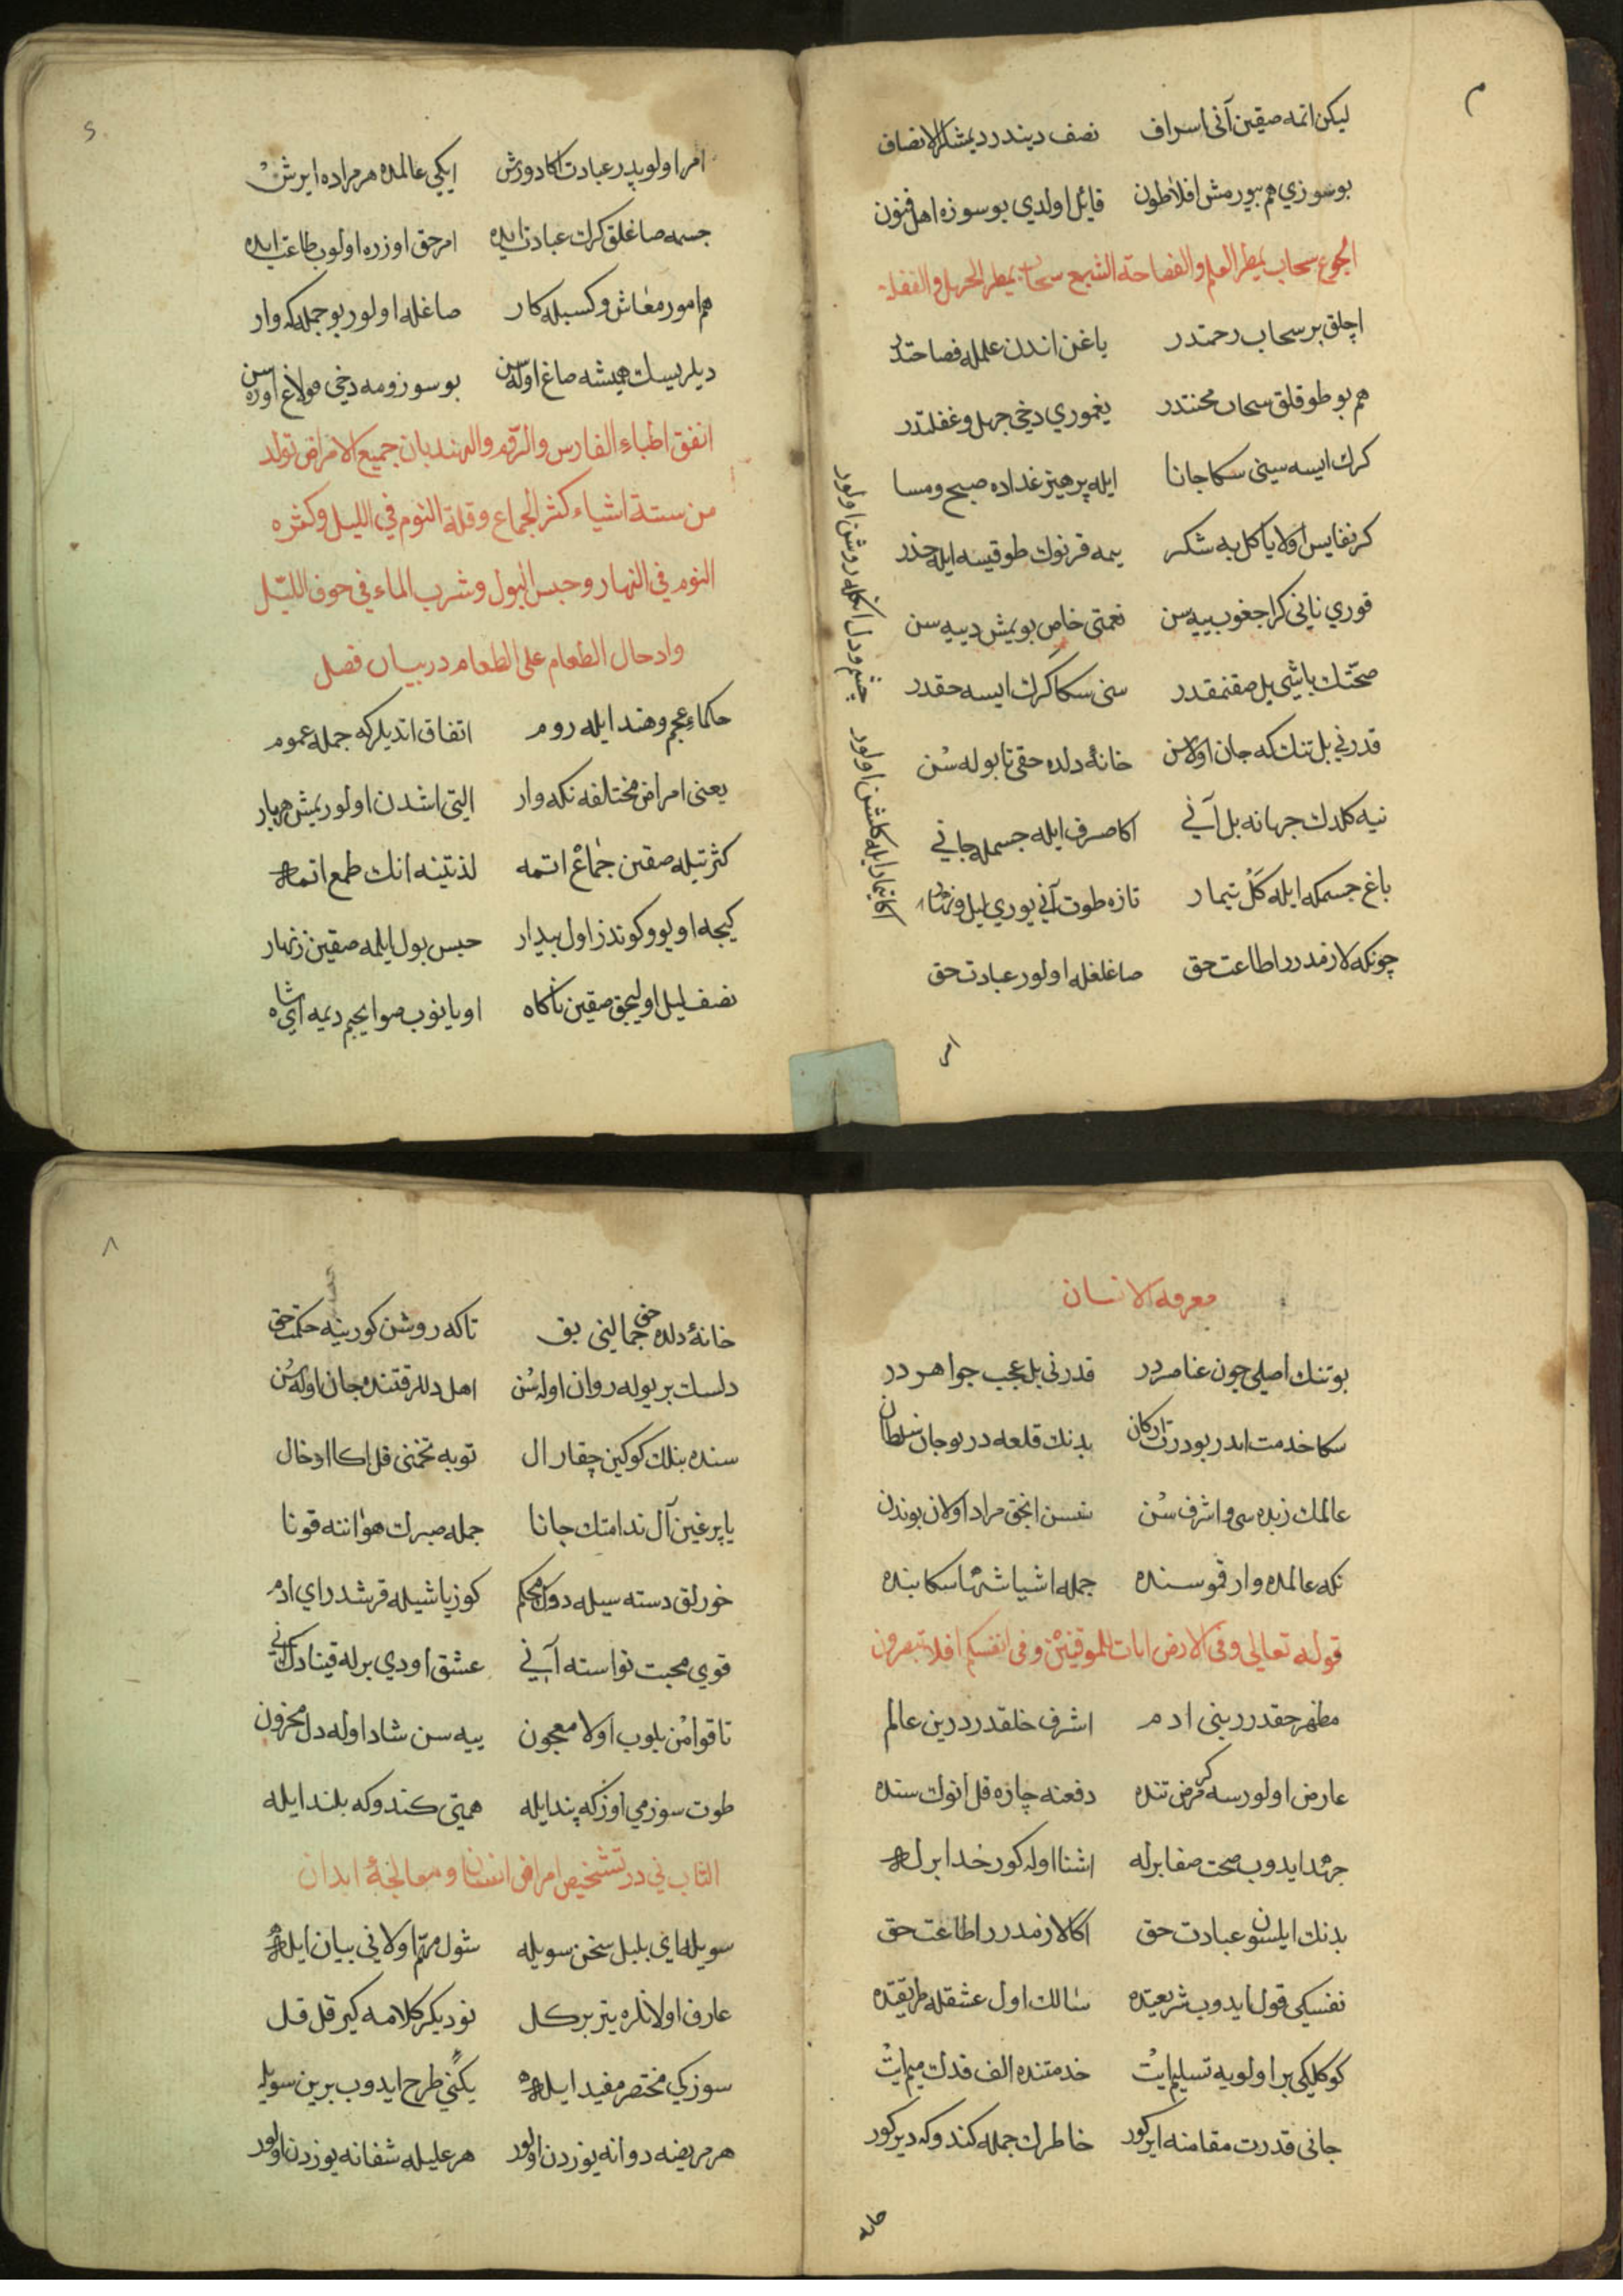 م
لیکن اتمه صقین آنی اسراف نصف دیندر دیمشلر الانصاف
بو سوزي هم بیورمش افلاطون قایل اولدي بو سوزه اهل فنون
الجوع سحاب یمطر العلم والفصاحة الشبع سحاب یمطر الجهل والغفلة
اچلق بر سحاب رحمتدر یاغن اندن علمله فصاحتدر
هم بو طوقلق سحاب محنتدر یغموري دخي جهل و غفلتدر
کرك ایسه سینی سکا جانا ایله پرهیز غداده صبح و مسا
کر نفایس اولا یا کل به شکر یمه قرنوك طوقیسه ایله حذر
قوري نانی کر اجغوب ییه سن نعمتی خاص بویمش دییه سن
صحتك باشی بل صقنمقدر سنی سکا کرك ایسه حقدر
قدرني بل تنك که جان اولاسن خانهٔ دلده حقی تا بوله سن
نیه کلدك جهانه بل آنی اکا صرف ایله جسمله جاني
باغ جسمکه ایله کل تیمار تازه طوت آنی یوري لیل و نهار
چونکه لازمدرر اطاعت حق صاغلغله اولور عبادت حق
چشم و دل انکله روشن اولور
اکا تیمار ایله کلشن اولور
امر
امر اولوبدر عبادت اکا دورش ایکی عالمده هر مراده ایرش
جسمه صاغلق کرك عبادت ایده امر حق اوزره اولوب طاعت ایده
هم امور معاش و کسبله کار صاغله اولور بو جمله که وار
دیلریسك همیشه صاغ اوله سن بو سوزومه دخي قولاغ اوره سن
اتفق اطباء الفارس والروم والهند بان جمیع الامراض تولد
من ستة اشیاء کثر الجماع و قلة النوم في اللیل و کثره
النوم في النهار و حبس البول و شرب الماء في جوف اللیل
وادخال الطعام علی الطعام در بیان فصل
حکماء عجم و هند ایله روم اتفاق اتدیلر که جمله عموم
یعنی امراض مختلفه نکه وار التی اشدن اولور یمش هربار
کثرتیله صقین جماع اتمه لذتینه انك طمع اتمه
کیجه اویو و کوندز اول بیدار حبس بول ایلمه صقین زنهار
نصف لیل اولیجق صقین ناکاه اویانوب صو ایچم دیمه ای شاه
معرفه الانسان
بو تنك اصلی چون عناصردر قدرنی بل عجب جواهردر
سکا خدمت ایدر بو درت ارکان بدنك قلعه در بو جان سلطان
عالمك زبده سی و اشرفی سن سسن انجق مراد اولان بوندن
نکه عالمده وار قمو سنده جمله اشیا شها سکا بنده
قوله تعالی وفی الارض ایات للموقنین وفی انفسکم افلا تبصرون
مظهر حقدرر بنی ادم اشرف خلقدرر درین عالم
عارض اولورسه کر مرض تنده دفعنه چاره قل انوك سنده
جهد ایدوب صحت صفا برله اشنا اوله کور خدا برله
بدنك ایلسون عبادت حق اکا لازمدرر اطاعت حق
نفسکی قول ایدوب شریعتده سالك اول عشقله طریقتده
کوکلیکی بر اولویه تسلیم ایت خدمتنده الف قدك میم ایت
جانی قدرت مقامنه ایر کور خاطرك جمله کندوکه دیر کور
خانه
٨
خانهٔ دلده حق جمالینی بق تا که روشن کورینه حکمت حق
دلسك بر یوله روان اوله سن اهل دللر قتنده جان اوله سن
سنده بنلك کوکین چقار ال توبه تخمنی قل اکا ادخال
یاپرغین آل ندامتك جانا جمله صبرك هواننه قونا
خورلق دسته سیله دوك محکم کوز یاشیله قرشدر ای ادم
قوي محبت تواسته آنی عشق اودي برله قیناد
تا قوامن بلوب اولا معجون ییه سن شاد اوله دل محزون
طوت سوزمي اوزکه پند ایله همتی کندوکه بلند ایله
الثاب ني در تشخیص امراض انسان و معالجهٔ ابدان
سویله ای بلبل سخن سویله شول مهم اولانی بیان ایله
عارف اولانلره یتر بر کل نو دیکر کلامه کیر قل قل
سوزکي مختصر مفید ایله یکنی طرح ایدوب برین سویله
هر مریضه دوا نه یوزدن اولور هر علیله شفا نه یوزدن اولور